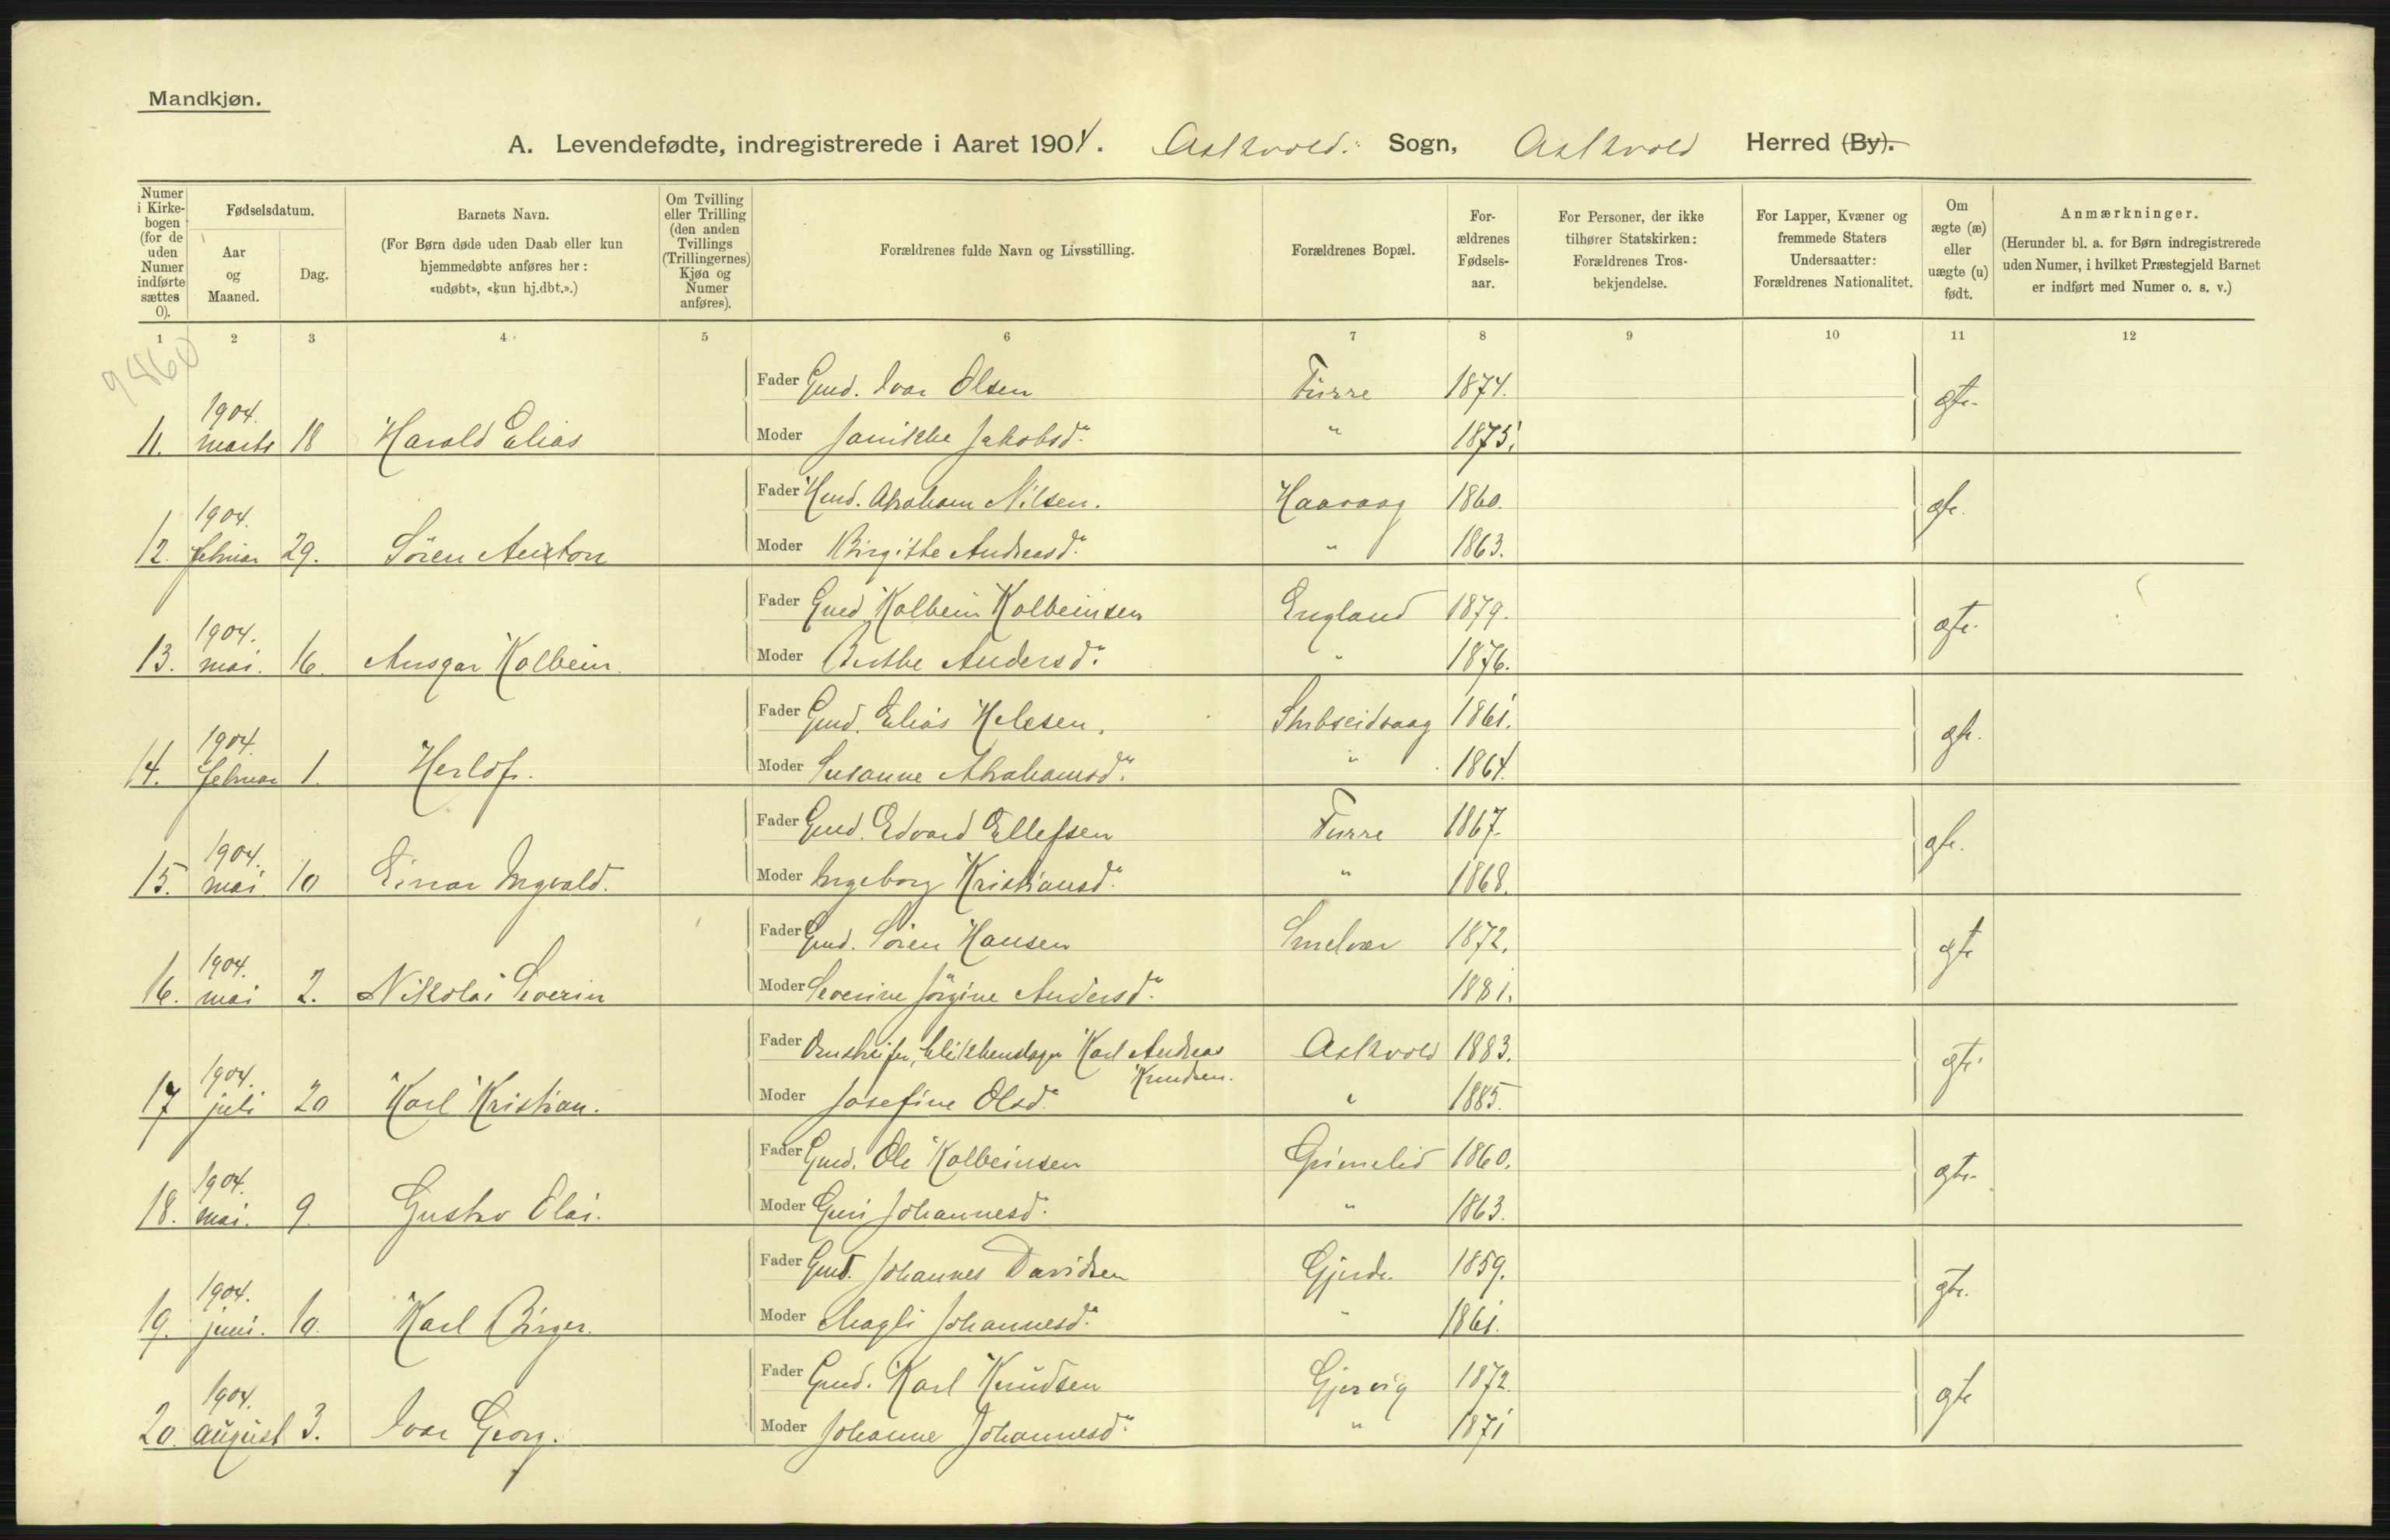 Mandkjøn.
A. Levendefødte, indregistrerede i Aaret 1904. Askvold. Sogn, Askvold Herred (By).
Numer i Kirkebogen (for de uden Numer indførte sættes 0).
Fødselsdatum.
Aar og Maaned.
Dag.
Barnets Navn.
(For Børn døde uden Daab eller kun hjemmedøbte anføres her: «udøbt», «kun hj.dbt.».)
Om Tvilling eller Trilling (den anden Tvillings (Trillingernes) Kjøn og Numer anføres).
Forældrenes fulde Navn og Livsstilling.
Forældrenes Bopæl.
Forældrenes Fødselsaar.
For Personer, der ikke tilhører Statskirken: Forældrenes Trosbekjendelse.
For Lapper, Kvæner og fremmede Staters Undersaatter: Forældrenes Nationalitet.
Om ægte (æ) eller uægte (u) født.
Anmærkninger.
(Herunder bl. a. for Børn indregistrerede uden Numer, i hvilket Præstegjeld Barnet er indført med Numer o. s. v.)
1 2 3 4 5 6 7 8 9 10 11 12
9460
Fader Gmd. Ivar Olsen Furre 1874. gte.
11. 1904. marts 18 Harald Elias Moder Jamikke Jakobsd. " 1875.
Fader Hmd. Abraham Nilsen. Haavaag 1860. gte.
12. 1904. februar 29. Sören Anton Moder Birgitte Andreasd. " 1863.
Fader Gmd Kolbein Kolbeinsen England 1879. gte.
13. 1904. mai. 16. Ansgar Kolbein. Moder Berthe Andersd. " 1876.
Fader Gmd. Elias Helesen. Stubseidvaag 1861. gte.
14. 1904. februar 1. Herlof. Moder Susanne Abrahamsd. " 1864.
Fader Gmd. Edvard Ellefsen Furre 1867. gte.
15. 1904. mai 10 Einar Ingvald. Moder Ingeborg Kristiansd. " 1868.
Fader Gmd. Sören Hansen Smelvær 1872. gte
16. 1904. mai 2. Nikolai Severin Moder Severine Jörgine Andersd. 1881.
Fader Omstreifer, blikkenslager Karl Andreas Knudsen. Askvold 1883. gte
17 1904. juli 20 Karl Kristian. Moder Josefine Olsd. " 1885.
Fader Gmd. Ole Kolbeinsen Grimelid 1860. gte.
18. 1904. mai. 9. Gustav Olai. Moder Guri Johannesd. " 1863.
Fader Gmd. Johannes Davidsen Gjerde. 1859. gte.
19. 1904. juni. 10. Karl Birger. Moder Magli Johannesd. " 1861.
Fader Gmd. Karl Knudsen Gjervig 1872. gte
20. 1904. august 3. Ivar Georg. Moder Johanne Johannesd. " 1871